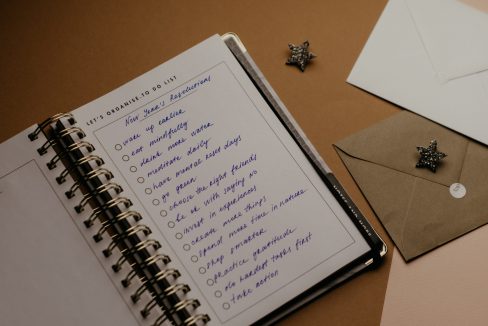 LET'S ORGANISE: TO DO LIST
New Year's Resolutions
wake up earlier
eat mindfully
drink more water
meditate daily
have mental reset days
go green
choose the right friends
be ok with saying no
invest in experiences
create more things
spend more time in nature
shop smarter
practice gratitude
do hardest tasks first
take action